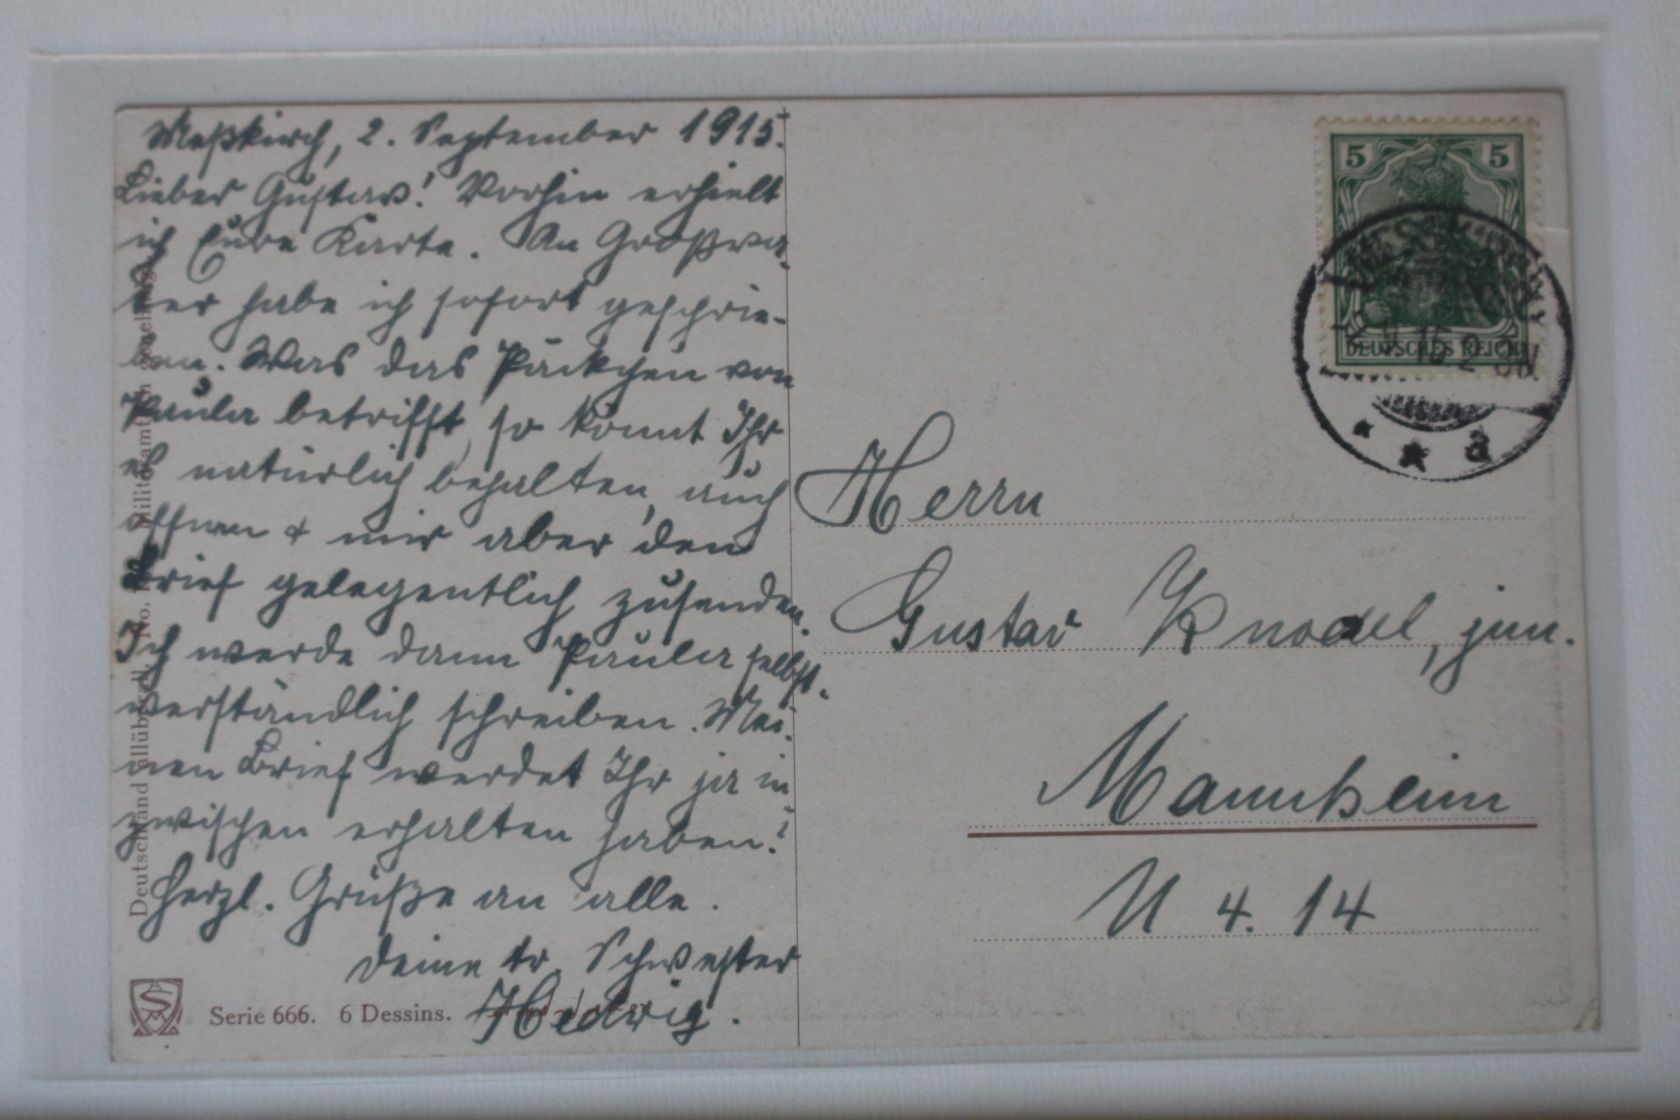 Meßkirch, 2. September 1915.
Lieber Gustav! Vorhin erhielt
ich Eure Karte. An Großva-
ter habe ich sofort geschrie-
ben. Was das Päckchen von
Paula betrifft, so könnt Ihr
es natürlich behalten, auch
öffnen & mir aber den
Brief gelegentlich zusenden.
Ich werde dann Paula selbst-
verständlich schreiben. Mei-
nen Brief werdet Ihr ja in-
zwischen erhalten haben!
Herzl. Grüße an alle.
Deine tr. Schwester
Hedwig.
Deutschland allüberall. No.
Serie 666. 6 Dessins.
5 5
DEUTSCHES REICH
a
Herrn
Gustav Knodel, jun.
Mannheim
U 4. 14